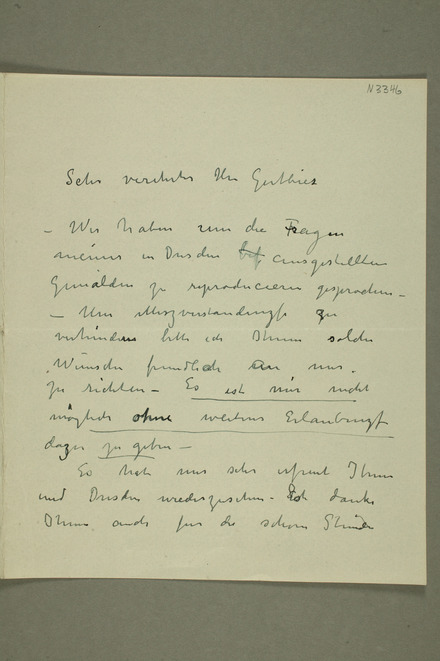 N3346
Sehr verehrter Herr Gutbier
– Wir haben um die Fragen
meiner in Dresden bef ausgestellten
Gemälden zu reproducieren gesprochen –
– Um Miszverständnisse zu
verhindern bitte ich Ihnen solche
Wünsche freundlich an mir
zu richten – Es ist mir nicht
möglich ohne weiteres Erlaubnisz
dazu zu geben –
Es hat mir sehr erfreut Ihnen
und Dresden wiederzusehen – Ich danke
Ihnen auch für die schönen Stunden